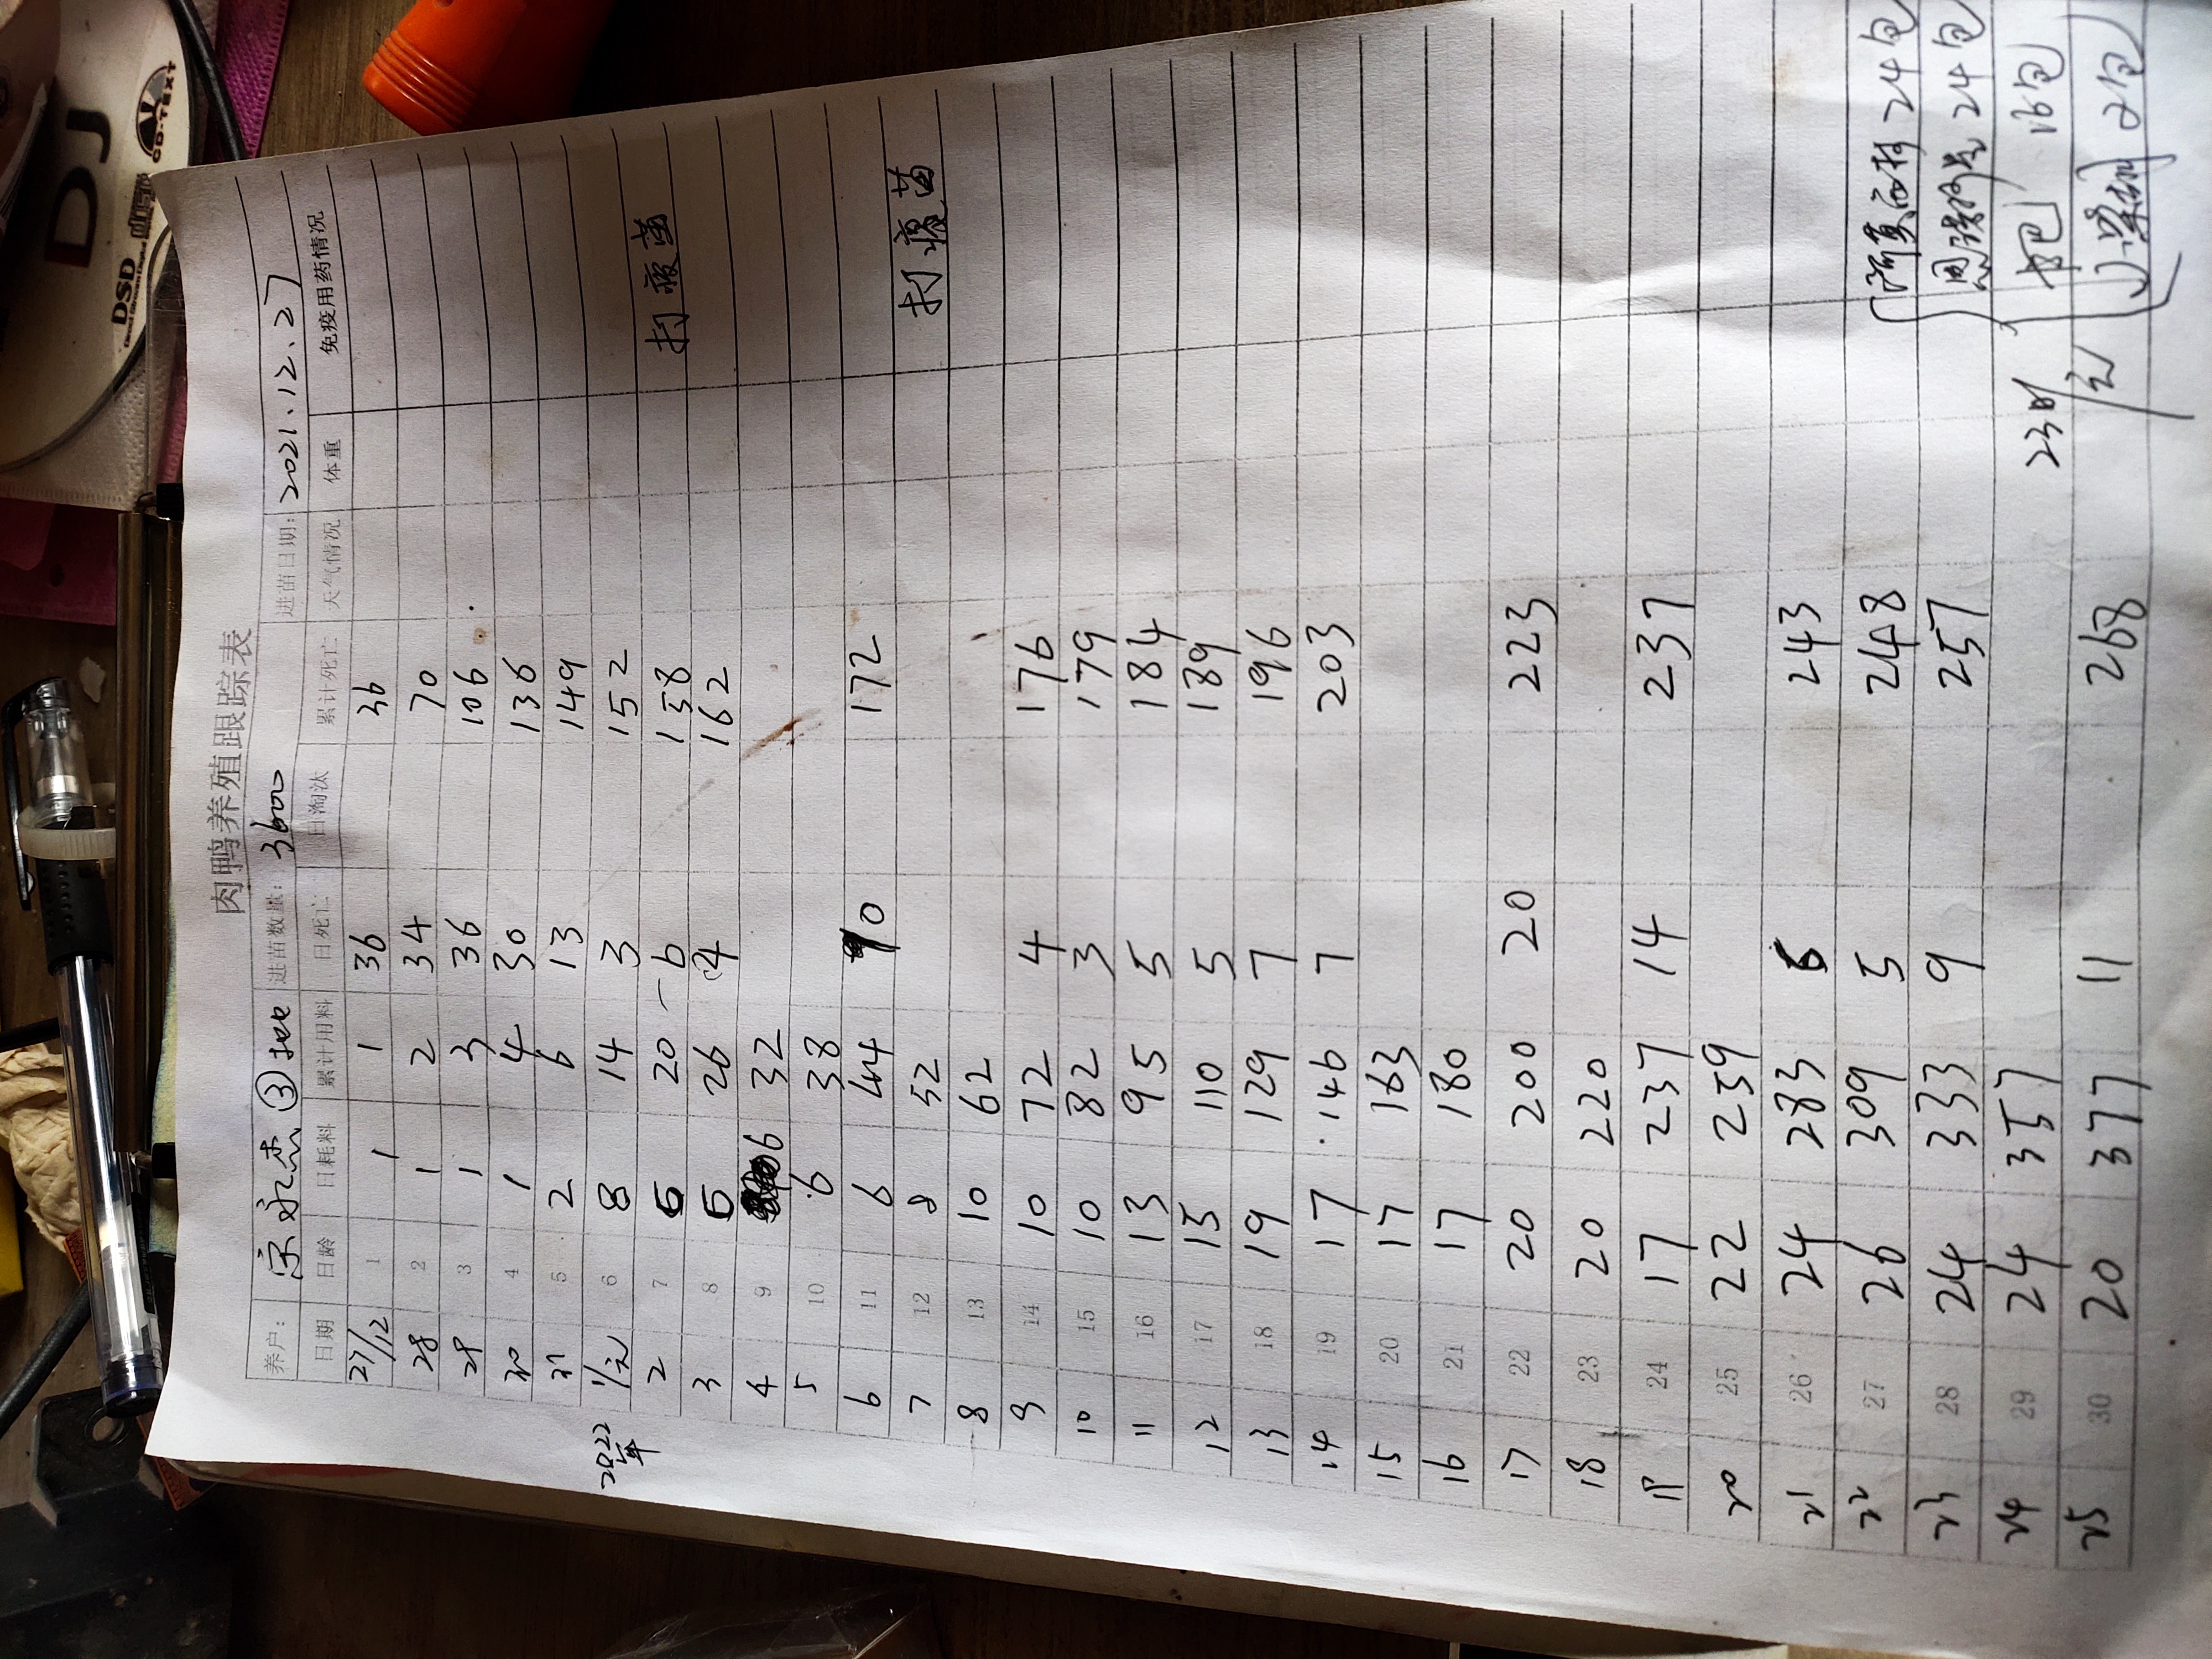 肉鸭养殖跟踪表
养户: 宗永杰 ③ 进苗数量: 3600 进苗日期: 2021.12.27
日期 日龄 日耗料 累计用料 日死亡 日淘汰 累计死亡 天气情况 体重 免疫用药情况
27/12 1 1 1 36 36
28 2 1 2 34 70
29 3 1 3 36 106
30 4 1 4 30 136
31 5 2 6 13 149
2022年 1/元 6 8 14 3 152
2 7 6 20 6 158 打疫苗
3 8 6 26 4 162
4 9 6 32
5 10 6 38
6 11 6 44 10 172
7 12 8 52 打疫苗
8 13 10 62
9 14 10 72 4 176
10 15 10 82 3 179
11 16 13 95 5 184
12 17 15 110 5 189
13 18 19 129 7 196
14 19 17 146 7 203
15 20 17 163
16 21 17 180
17 22 20 200 20 223
18 23 20 220
19 24 17 237 14 237
20 25 22 259
21 26 24 283 6 243
22 27 26 309 5 248 24包
23 28 24 333 9 257 24包
24 29 24 357 23时 16包
25 30 20 377 11 268 2包
DJ
DSD
CD-TEXT